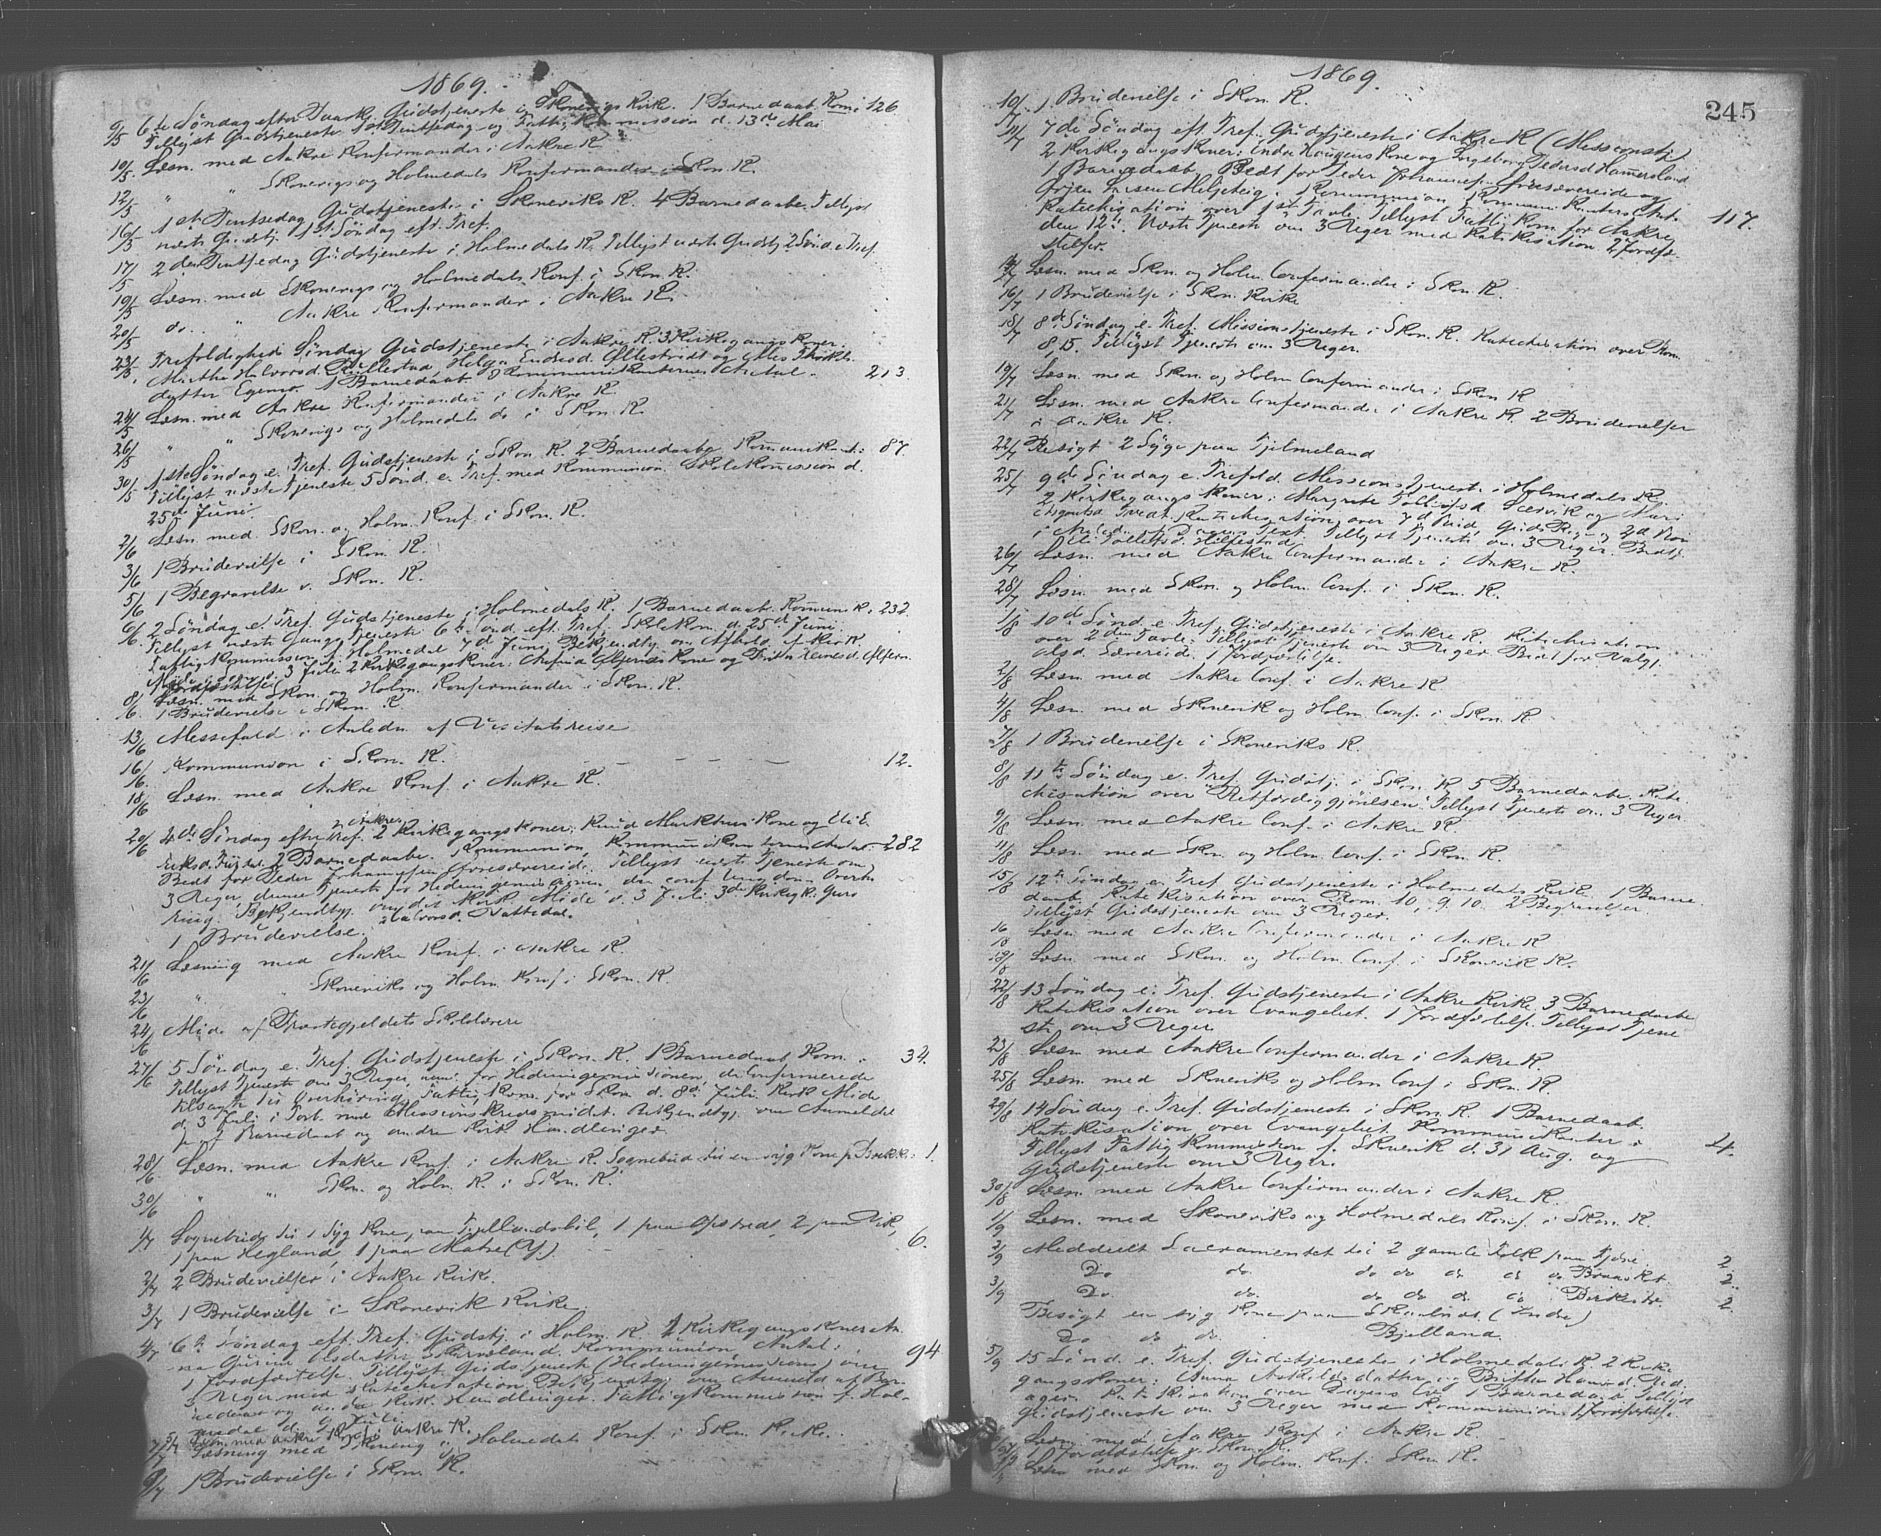 1869.
9/5 6te Søndag efter Paask. Gudstjeneste i Skonevigs Kirke. 1 Barnedaab. Kom: 126
Tillyst Gudstjeneste 1st Pintsedag og Fattigkommission d. 13de Mai
10/5 Læsn. med Aakre Konfirmander i Aakre K.
12/5 " Skonevigs og Holmedals Konfirmander i Skon. K.
16/5 1ste Pintsedag Gudstjeneste i Skoneviks K. 4 Barnedaabe. Tillyst
næste Gudstj. 1st Søndag eft. Tref.
17/5 2den Pintsedag Gudstjeneste i Holmedals K. Tillyst næste Gudstj 2 Sønd. e Tref.
19/5 Læsn. med Skonevigs og Holmedals Konf. i Skon. K.
20/5 do. " Aakre Konfirmander i Aakre K.
23/5 Trefoldigheds Søndag Gudstjeneste i Aakre K. 3 Kirkegangskoner.
Martha Halvorsd. Rullestad, Helga Endresd.
datter Egenes. 1 Barnedaab. Kommunikanternes Antal - 213.
24/5 Læsn. med Aakre Konfirmander i Aakre K.
26/5 " " Skonevigs og Holmedals do i Skon. K.
30/5 1ste Søndag e. Tref. Gudstjeneste i Skon. K. 2 Barnedaabe Kommunikant: 87.
Tillyst næste Tjeneste 5 Sønd. e. Tref. med Kommunion. Skolekommission d.
25de Juni
2/6 Læsn. med Skon. og Holm. Konf. i Skon. K.
3/6 1 Brudevielse i Skon. K.
5/6 1 Begravelse v. Skon. K.
6/6 2 Søndag e. Tref. Gudstjeneste i Holmedals K. 1 Barnedaab. Kommunik: 232
Tillyst næste Gang Tjeneste 6te Sønd. eft. Tref. Skolekom. d. 25de Juni.
Fattigkommission f. Holmedal 7d. Juni. Bekjendtg. om Afhold. af Kirk.
Møde 3 Juli 2 Kirkegangskoner:
8/6 Læsn. med Skon. og Holm. Konfirmander i Skon. K.
1 Brudevielse i Skon. K.
13/6 Messefald i Anledn. af Visitatsreise
16/6 Kommunion i Skon. K. - - - - - 12.
18/6 Læsn. med Aakre Konf. i Aakre K.
20/6 4de Søndag efter Tref. i Aakre. 2 Kirkegangskoner: Knud Markhus Kone og Eli E-
riksd. 2 Barnedaabe. Kommunion, Kommunikanternes Antal - 282
Bedt for Peder Johannessen Tillyst næste Tjeneste om
3 Uger, denne Tjeneste for Hedningemissionen, den conf. Ungdom Overhø
ring. Bekjendtg. om det Kirk. Møde d. 3 Juli. 3de Kirkegk: Guro
Halvorsd. Vattedal.
1 Brudevielse.
21/6 Læsning med Aakre Konf. i Aakre K.
23/6 " " Skoneviks og Holm. Konf. i Skon. K.
24/6 Møde af Præstegjeldets Skolelærere
27/6 5 Søndag e. Tref. Gudstjeneste i Skon. K. 1 Barnedaab Kom. - 34.
Tillyst Tjeneste om 3 Uger, for Hedningemissionen, de Confirmerede
tilsagte til Overhøring, Fattigkom. for Skon. d. 8de Juli. Kirk Møde
d. 3 Juli i Forb. med Missionskredsmødet. Bekjendtg. om Anmeldel
se af Barnedaab og andre Kirk. Handlinger.
28/6 Læsn. med Aakre Konf. i Aakre K. Sognebud til en syg Kone p. Bække: 1.
30/6 " " Skon. og Holm. K. i Skon. K.
1/7 Sognebud til 1 Syg Kone paa 1 paa Opsveds, 2 paa Vik,
1 paa Hegland, 1 paa Matre (Y.) 6.
2/7 2 Brudevielser i Aakre Kirke.
3/7 1 Brudevielse i Skonevik Kirke
4/7 6te Søndag eft. Tref. Gudstj. i Holm. K. 1 Kirkegangskone: An
na Gurine Olsdatter Kommunion, Antal: 94
1 Jordfæstelse. Tillyst Gudstjeneste (Hedningemissions) om
3 Uger med Katechisation. Bekjendtg. om Anmeld af Bar
nedaab og andre Kirk. Handlinger. Fattigkommission f. Hol-
medal d. 9 Juli
5/7 Læsn. med Aakre Konf. i Aakre K.
7/7 Læsning med Skonevig og Holmedals Konf. i Skon. Kirke.
9/7 1 Brudevielse i Skon. K.
1869.
245
10/7 1 Brudevielse i Skon. K.
11/7 7de Søndag eft. Tref. Gudstjeneste i Aakre K (Missionstj.
2 Kirkegangskoner: Endre Haugens Kone og Ingeborg Pedersd Hamersland
1 Barnedaab. Bedt for Peder Johannessen og
Larsen Kommunion, Kommunikanters Ant. 117.
Katechisation over 1ste Tavle. Tillyst Fattigkom. for Aakre
den 12te. Næste Tjeneste om 3 Uger med Katekisation 2 Jordfæ-
stelser.
14/7 Læsn. med Skon. og Holm. Confirmander i Skon. K.
16/7 1 Brudevielse i Skon. Kirke
18/7 8de Søndag e. Tref. Missionstjeneste i Skon. K. Katechisation over Rom.
8,15. Tillyst Tjeneste om 3 Uger.
19/7 Læsn. med Skon. og Holm Confirmander i Skon K
21/7 Læsn. med Aakre Confirmander i Aakre K. 2 Brudevielser
i Aakre K.
22/7 Besøgt 2 Syge paa Fjelmeland
25/7 9de Søndag e. Trefold. Missionstjeneste i Holmedals K.
2 Kirkegangskoner: Margrete Tollefsd. og Kari
Katechisation over 7d. Bud,
i Anledn. af Dagens Text. Tillyst Tjeneste om 3 Uger. Bedt f.
26/7 Læsn. med Aakre Confirmander i Aakre K.
28/7 Læsn. med Skon. og Holm Conf. i Skon. K.
1/8 10de Sønd. e. Tref. Gudstjeneste i Aakre K. Katechisation
over 2den Tavle. Tillyst Tjeneste om 3 Uger Bedt for
Olsd. 1 Jordfæstelse.
2/8 Læsn. med Aakre Conf. i Aakre K
4/8 Læsn. med Skonevik og Holm. Conf. i Skon. K
7/8 1 Brudevielse i Skoneviks K.
8/8 11te Søndag e. Tref. Gudstj. i Skon. K. 5 Barnedaabe. Kate
chisation over "Retfærdiggjørelsen." Tillyst Tjeneste om 3 Uger.
9/8 Læsn. med Aakre Conf. i Aakre K
11/8 Læsn. med Skon. og Holm. Conf. i Skon. K.
15/8 12te Søndag e. Tref. Gudstjeneste i Holmedals Kirke. 1 Barne
daab. Katekisation over Rom. 10, 9. 10. 2 Begravelser.
Tillyst Gudstjeneste om 3 Uger.
16/8 Læsn. med Aakre Confirmander i Aakre K
18/8 Læsn. med Skon. og Holm. Conf. i Skonevik K.
22/8 13 Søndag e. Tref. Gudstjeneste i Aakre Kirke. 3 Barnedaabe
Katekisation over Evangeliet. 1 Jordfæstelse. Tillyst Tjene
ste om 3 Uger.
23/8 Læsn. med Aakre Confirmander i Aakre K.
25/8 Læsn. med Skoneviks og Holm Conf. i Skon. K.
29/8 14 Søndag e. Tref. Gudstjeneste i Skon. K. 1 Barnedaab.
Katekisation over Evangeliet. Kommunikanter: 24.
Tillyst Fattigkommission f. Skonevik d. 31 Aug. og
Gudstjeneste om 3 Uger.
30/8 Læsn. med Aakre Confirmander i Aakre K.
1/9 Læsn. med Skoneviks og Holmedals Konf. i Skon. K.
2/9 Meddeelt Sacramentet til 2 gamle Folk paa 2.
Do do. do do do do do 2.
3/9 Do. do. do do do. do Birkeland. 2.
Besøgt en syg Kone paa (Indre)
Do do do Bjelland.
5/9 15 Sønd. e. Tref. Gudstjeneste i Holmedals K 2 Kirke
gangskoner: Anna Askildsdatter og Brithe Hansd.
Katekisation over Dagens Ev. 1 Barnedaab. Tillyst
Gudstjeneste om 3 Uger med Kommunion. 1 Jordfæstelse
Læsn. med Aakre Konf i Aakre K
1 Jordfæstelse v. Skon. K.
Læsn med Skon. og Holm. Konf. i Skon. K.